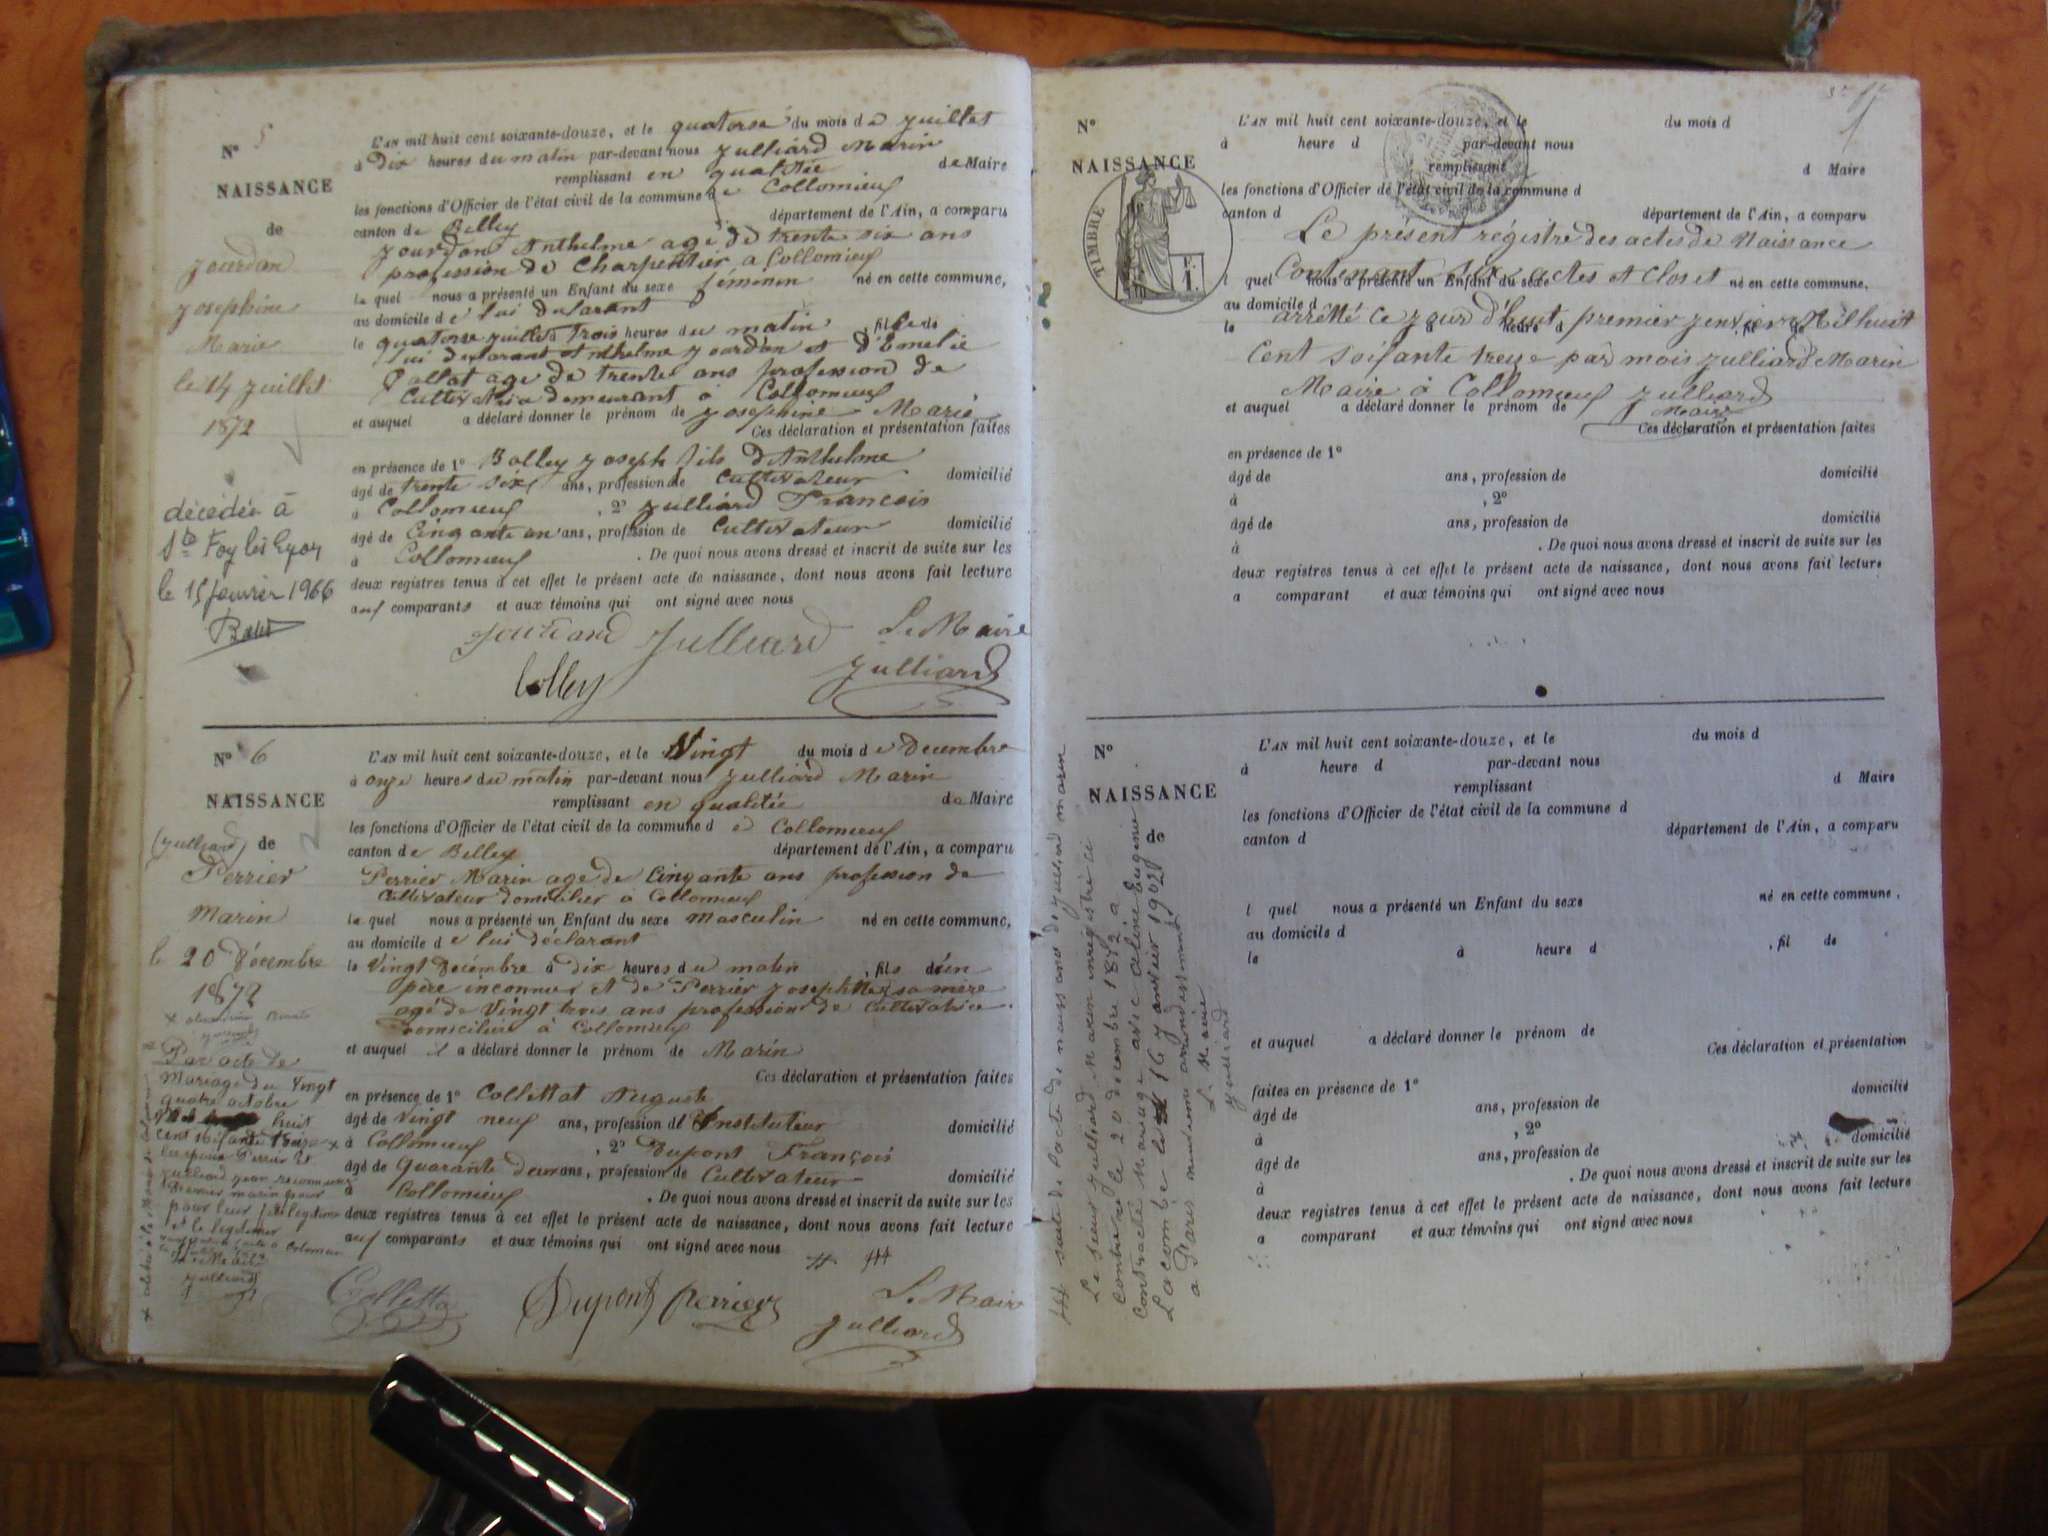 N° 5
NAISSANCE
de
Jourdan
Josephine
Marie
le 14 Juillet
1872
décédée à
Ste Foy lès Lyon
le 15 février 1966
L'AN mil huit cent soixante-douze, et le quatorse du mois de Juillet
à Dix heures du matin par-devant nous Julliard Marin
remplissant en qualitée de Maire
les fonctions d'Officier de l'état civil de la commune de Collomieux
canton de Belley département de l'Ain, a comparu
Jourdan Anthelme agé de trente six ans
profession de Charpentier a Collomieux
le quel nous a présenté un Enfant du sexe féminin né en cette commune,
au domicile de lui déclarant
le quatorse juillet trois heures du matin , fille de
lui declarant Anthelme Jourdan et d'Emelie
Pallat age de trente ans profession de
Cultivatrice demeurant à Collomieux
et auquel a déclaré donner le prénom de Josephine Marie
Ces déclaration et présentation faites
en présence de 1° Bolley Joseph fils d'Anthelme
âgé de trente six ans, profession de Cultivateur domicilié
à Collomieux , 2° Julliard Francois
âgé de Cinquante un ans, profession de Cultivateur domicilié
à Collomieux . De quoi nous avons dressé et inscrit de suite sur les
deux registres tenus à cet effet le présent acte de naissance, dont nous avons fait lecture
aux comparants et aux témoins qui ont signé avec nous
Jourdand Julliard Le Maire
Bolley Julliard
N° 6
NAISSANCE
(Julliard) de
Perrier
Marin
le 20 Décembre
1872
Par acte de
Mariage du Vingt
quatre octobre
huit
cent soixante treize
les époux Perrier et
Julliard Jean reconnaissent
Perrier marin pour
pour leur fils legitime
et le legitimer
Le Maire
Julliard
L'AN mil huit cent soixante-douze, et le Vingt du mois de Decembre
à onze heures du matin par-devant nous Julliard Marin
remplissant en qualitée de Maire
les fonctions d'Officier de l'état civil de la commune d e Collomieux
canton de Belley département de l'Ain, a comparu
Perrier Marin age de Cinquante ans profession de
Cultivateur domicilier à Collomieux
le quel nous a présenté un Enfant du sexe Masculin né en cette commune,
au domicile de lui déclarant
le Vingt Decémbre à Dix heures du matin , fils d'un
père inconnue et de Perrier Josephte sa mère
agé de Vingt trois ans profession de Cultivatrice
Domiciliée à Collomieux
et auquel il a déclaré donner le prénom de Marin
Ces déclaration et présentation faites
en présence de 1° Collettat Auguste
âgé de Vingt neuf ans, profession d'Instituteur domicilié
à Collomieux , 2° Dupont François
âgé de Quarante deux ans, profession de Cultivateur domicilié
à Collomieux . De quoi nous avons dressé et inscrit de suite sur les
deux registres tenus à cet effet le présent acte de naissance, dont nous avons fait lecture
aux comparants et aux témoins qui ont signé avec nous
Colletta Dupont Perrier Le Maire
Julliard
N°
NAISSANCE
TIMBRE
L'AN mil huit cent soixante-douze, et le du mois d
à heure d par-devant nous
remplissant d Maire
les fonctions d'Officier de l'état civil de la commune d
canton d département de l'Ain, a comparu
Le présent régistre des actes de Naissance
Contenant six actes et Clos et
l quel nous a présenté un Enfant du sexe né en cette commune,
au domicile d
arrêtté ce jour d'huit premier Jenvier Mil huit
le à heure d , fil de
Cent soixante treize par mois Julliard Marin
Maire à Collomieux Julliard
Maire
et auquel a déclaré donner le prénom de
Ces déclaration et présentation faites
en présence de 1°
âgé de ans, profession de domicilié
à , 2°
âgé de ans, profession de domicilié
à . De quoi nous avons dressé et inscrit de suite sur les
deux registres tenus à cet effet le présent acte de naissance, dont nous avons fait lecture
a comparant et aux témoins qui ont signé avec nous
N°
NAISSANCE
de
L'AN mil huit cent soixante-douze, et le du mois d
à heure d par-devant nous
remplissant d Maire
les fonctions d'Officier de l'état civil de la commune d
canton d département de l'Ain, a comparu
l quel nous a présenté un Enfant du sexe né en cette commune.
au domicile d
le à heure d , fil de
et auquel a déclaré donner le prénom de
Ces déclaration et présentation
faites en présence de 1° domicilié
âgé de ans, profession de
à , 2° domicilié
âgé de ans, profession de
à . De quoi nous avons dressé et inscrit de suite sur les
deux registres tenus à cet effet le présent acte de naissance, dont nous avons fait lecture
a comparant et aux témoins qui ont signé avec nous
suite de l'acte de naissance de Julliard marin
Le sieur Julliard Marin enregistré ci
contre le 20 décembre 1872 a
contracté Mariage avec Aline Eugénie
Lacombe le 16 Janvier 1902
a Paris arrondissement
Le Maire
Julliard